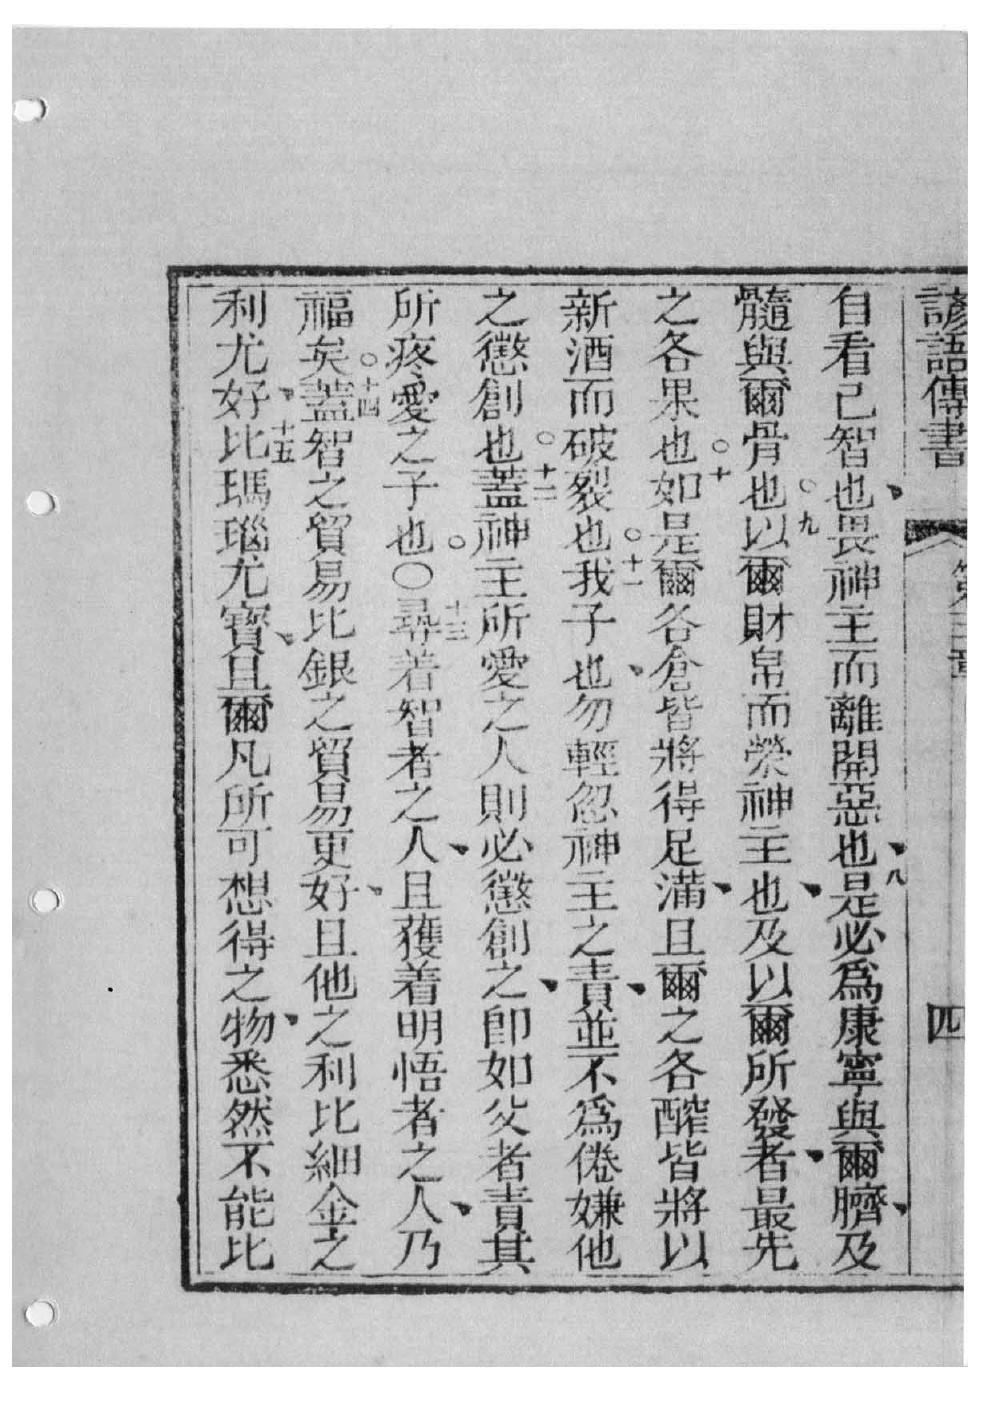 諺語傳書 第三章 四
自看己智也畏神主而離開惡也八是必爲康寧與爾臍及
髓與爾骨也九以爾財帛而榮神主也及以爾所發者最先
之各果也十如是爾各倉皆將得足滿且爾之各醡皆將以
新酒而破裂也十一我子也勿輕忽神主之責並不爲倦嫌他
之懲創也十二蓋神主所愛之人則必懲創之卽如父者責其
所疼愛之子也〇十三尋着智者之人且獲着明悟者之人乃
福矣十四蓋智之貿易比銀之貿易更好且他之利比細金之
利尤好十五比瑪瑙尤寶且爾凡所可想得之物悉然不能比